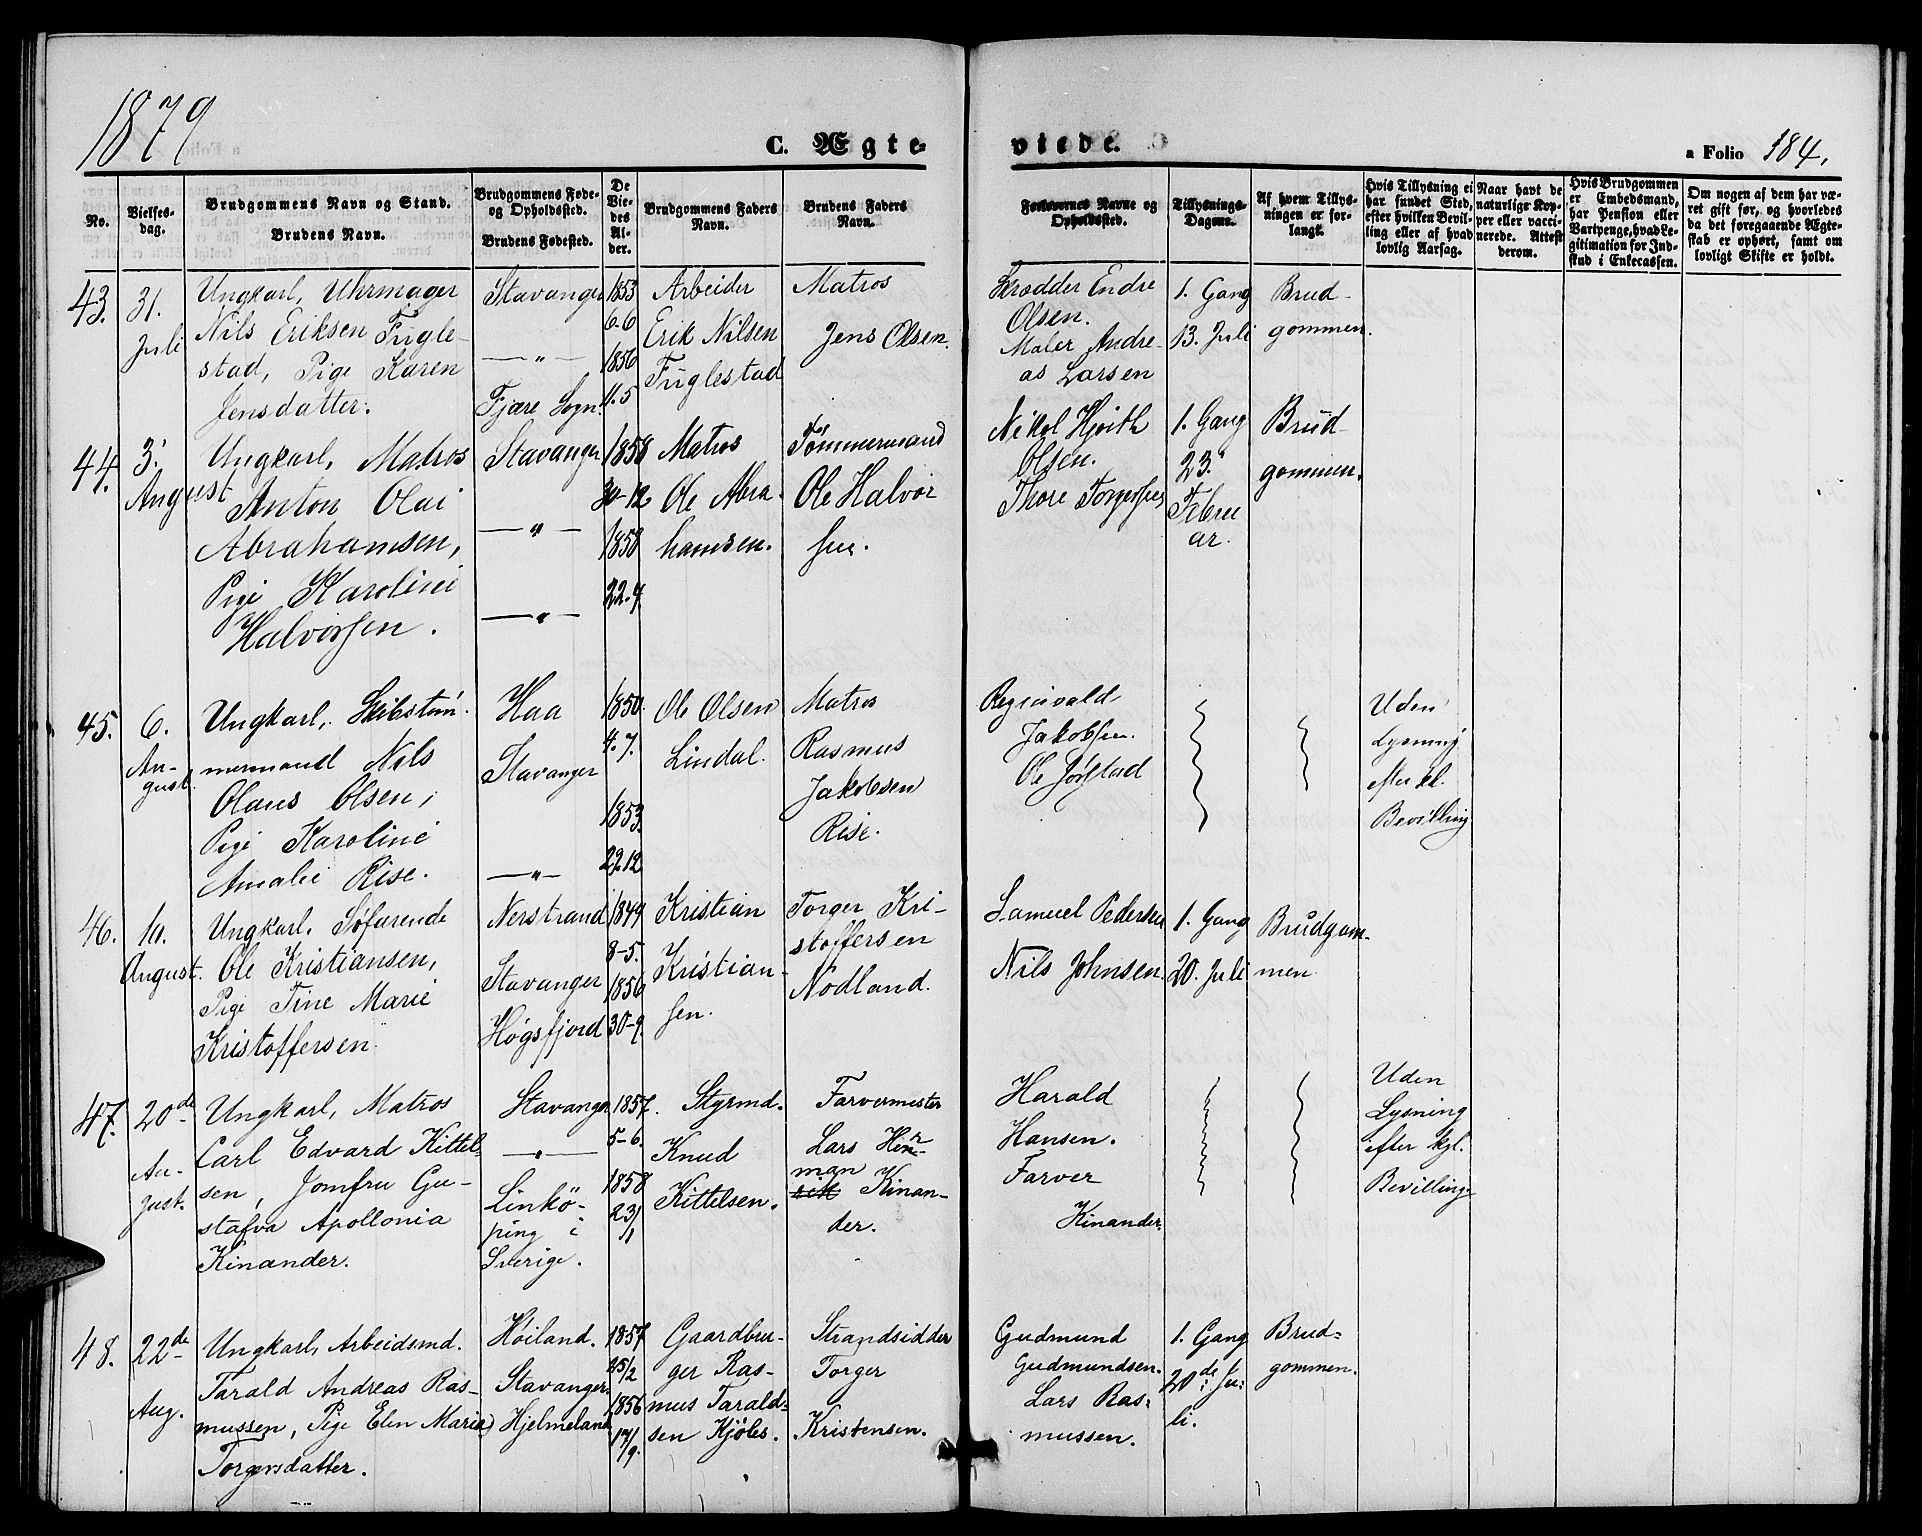 1879
C. Ægte-
viede.
a Folio 184.
No.
Vielses-
dag.
Brudgommens Navn og Stand.
Brudens Navn.
Brudgommens Føde-
og Opholdssted.
Brudens Fødested.
De
Vie-
des
Al-
der.
Brudgommens Faders
Navn.
Brudens Faders
Navn.
Forlovernes Navne og
Opholdssted.
Tillysnings-
Dagene.
Af hvem Tillys-
ningen er for-
langt.
Hvis Tillysning ei
har fundet Sted,
efter hvilken Bevil-
ling eller af hvad
lovlig Aarsag.
Naar havt de
naturlige Kop-
per eller vacci-
nerede. Attest
derom.
Hvis Brudgommen
er Embedsmand,
har Pension eller
Vartpenge, hvad Le-
gitimation for Ind-
skud i Enkecassen.
Om nogen af dem har væ-
ret gift før, og hvorledes
da det foregaaende Ægte-
skab er ophørt, samt om
lovligt Skifte er holdt.
43.
31.
Juli
Ungkarl, Uhrmager
Nils Eriksen Fugle-
stad, Pige Karen
Jensdatter.
Stavanger
—"—
Fjære Sogn.
1853
6-6
1856
11.5
Arbeider
Erik Nilsen
Fuglestad
Matros
Jens Olsen.
Skrædder Endre
Olsen.
Maler Andre-
as Larsen
1. Gang
13. Juli
Brud-
gommen.
44.
3.
August
Ungkarl, Matros
Anton Olai
Abrahamsen,
Pige Karoline
Halvorsen.
Stavanger
—"—
—"—
1858
30-12
1858
22.4
Matros
Ole Abra-
hamsen.
Tømmermand
Ole Halvor
sen.
Nikol Hjorth
Olsen.
Thore Torgersen
1. Gang
23.
Febru
ar.
Brud-
gommen.
45.
6.
Au-
gust.
Ungkarl, Skibstøm-
mermand Nils
Olaus Olsen,
Pige Karoline
Amalie Rise.
Haa
Stavanger
—"—
1850.
4.7.
1853.
22.12
Ole Olsen
Lindal.
Matros
Rasmus
Jakobsen
Rise.
Reginvald
Jakobsen.
Ole Jørstad
Uden
Lysning
efter kl.
Bevilling
46.
10.
August.
Ungkarl. Søfarende
Ole Kristiansen,
Pige Tine Marie
Kristoffersen.
Nerstrand
Stavanger
Høgsfjord
1849.
8-5.
1856
30-9.
Kristian
Kristian-
sen.
Torger Kri-
stoffersen
Nodland.
Samuel Pedersen
Nils Johnsen.
1. Gang
20. Juli
Brudgom-
men
47.
20de
Au-
gust.
Ungkarl, Matros
Carl Edvard Kittel-
sen, Jomfru Gu-
stafva Apollonia
Kinander.
Stavanger
—"—
Linkö-
ping i
Sverige.
1857.
5-6.
1858
23/1
Styrmd.
Knud
Kittelsen.
Farvermester
Lars Her-
man
Kinan-
der.
Harald
Hansen.
Farver
Kinander.
Uden
Lysning
efter kgl.
Bevilling
48.
22de
Aug.
Ungkarl, Arbeidsmd.
Tarald Andreas Ras-
mussen, Pige Elen Maria
Torgersdatter.
Høiland.
Stavanger
Hjelmeland
1857
25/2
1856
17/9.
Gaardbru-
ger Ras-
mus Tarald-
sen Kjølis.
Strandsidder
Torger
Kristensen.
Gudmund
Gudmundsen.
Lars Ras-
mussen.
1. Gang
20de Ju-
li.
Brud-
gommen.